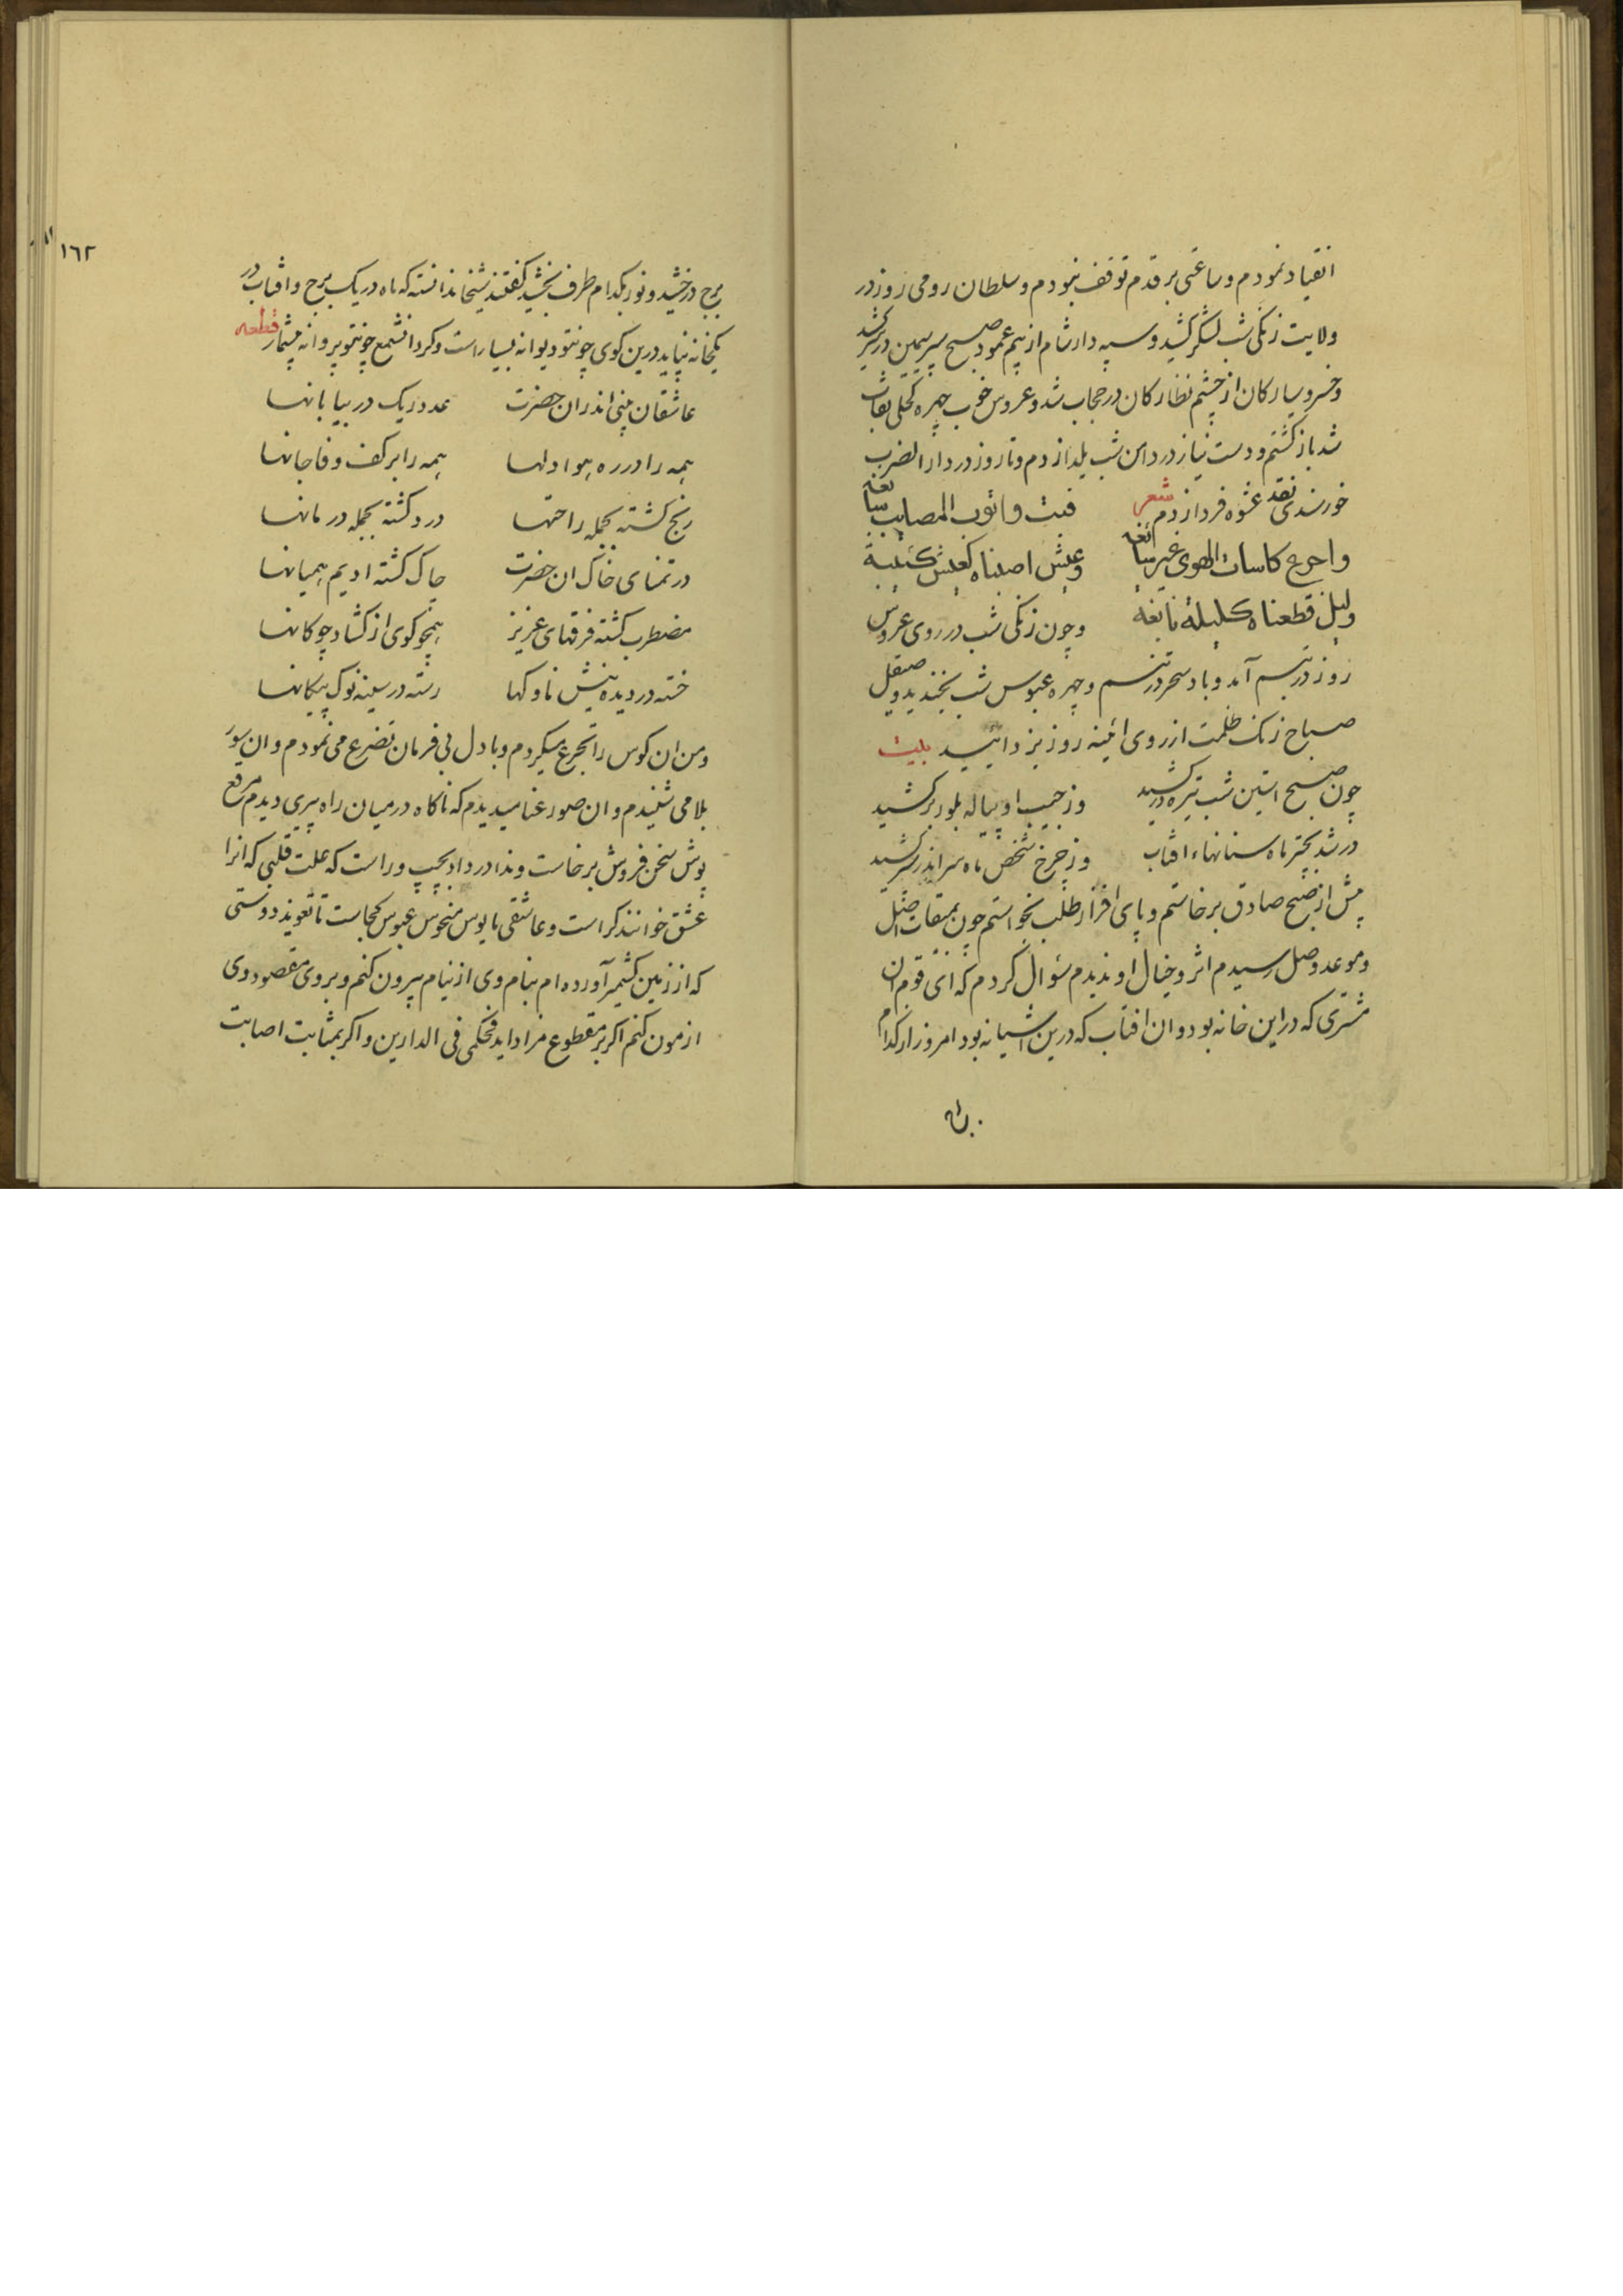 انقیاد نمودم و ساعتی بر قدم توقف نبمودم و سلطان رومی روز در
ولایت زنکی شب لشکر کشید و سپه دار شام از بیم عمود صبح سپر سیمین در سر کشید
و خسرو سیارکان از چشم نظارکان در حجاب شد و عروس خوب چهره کحلی نقاب
شد بازکشتم و دست نیاز در دامن شب یلدا زدم و تا روز در دار الضرب
خورسندی نقد عشوه فردا زدم شعر فبت و اثوب المصایب سابغه
و اجرع کاسات الهوی غیر سائغه وعیش اصبناه کعیش کئیبة
ولیل قطعناه کلیلة نابغه و چون زنکی شب در روی عروس
روز در تبسم آمد و باد سحر در تنسم و چهره عبوس شب بخندید و صیقل
صباح زنک ظلمت از روی ائینه روز بزدائید بیت
چون صبح استین شب تیره در کشید وز جیب او پیاله بلور بر کشید
در شد بچتر ماه سنانهاء افتاب وز چرخ شخص ماه سر اندر سر کشید
پیش از صبح صادق برخاستم و پای افزار طلب بخواستم چون بمیقات اصل
و موعد وصل رسیدم اثر و خیال او ندیدم سؤال کردم که ای قوم ان
مشتری که در این خانه بود و ان افتاب که درین اشیانه بود امروز از کدام
برج
١٦٢
برج درخشید و نور بکدام طرف بخشید کفتند شیخا ندانسته که ماه در یک برج و افتاب در
یکخانه نپاید درین کوی چو تتو دیوانه بسیار است و کرد انشمع چو تتو پروانه بیشمار قطعه
عاشقان بینی اندران حضرت عدد ریک در بیابانها
همه را در ره هوا دلها همه را بر کف وفا جانها
رنج کشته بجمله راحتها درد کشته بجمله درمانها
در تمنای خاک ان حضرت چاک کشته ادیم همیانها
مضطرب کشته فرقهای عزیز همچو کوی از کشاد چوکانها
خسته در دیده نیش ناوکها رسته در سینه نوک پیکانها
و من ان کوس را تجرع میکردم و با دل بی فرمان تضرع می نمودم و ان سور
بلا می شنیدم و ان صور عنا میدیدم که ناکاه در میان راه پیری دیدم مرقع
پوش سخن فروش برخاست و ندا در داد بچپ و راست که علت قلبی که انرا
عشق خوانند کراست و عاشقی مایوس منحوس عبوس کجاست تا تعویذ دوستی
که از زمین کشمیر آورده ام بنام وی از نیام بیرون کنم و بر وی مقصود وی
ازمون کنم اکر بر مقطوع مراد اید فحکمی فی الدارین و اکر بمثابت اصابت